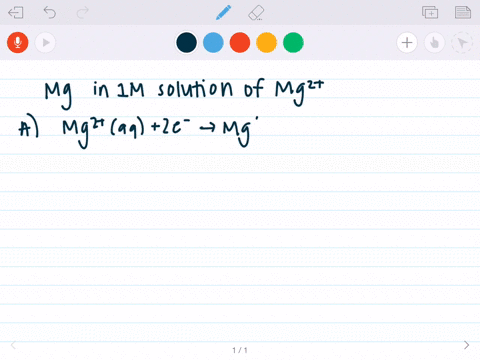 Mg in 1M solution of Mg²⁺
A) Mg²⁺ (aq) + 2e⁻ → Mg
1 / 1